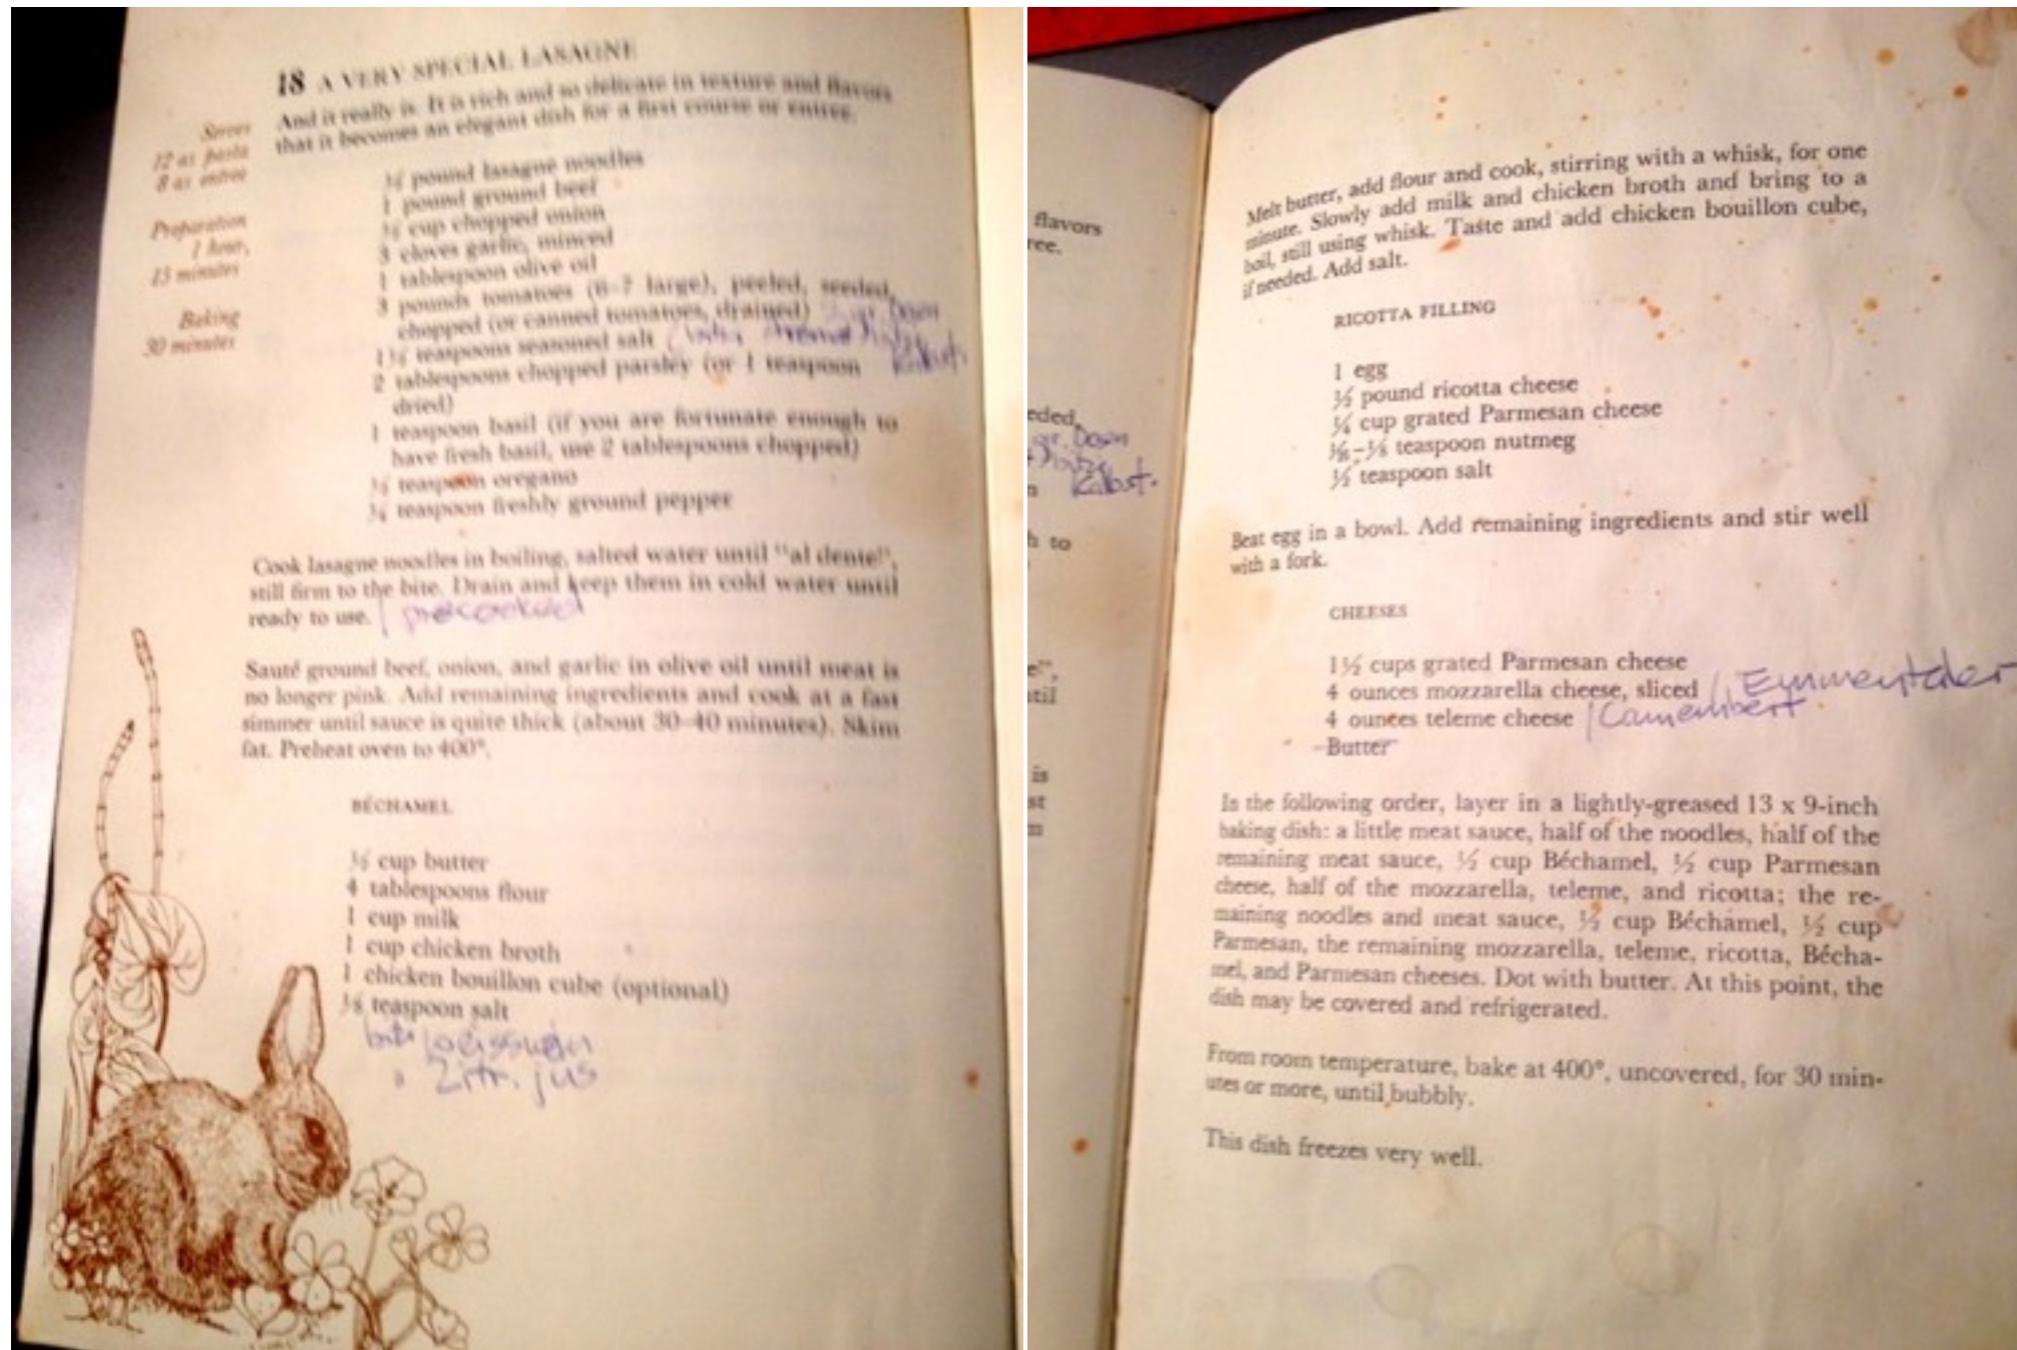 18 A VERY SPECIAL LASAGNE
And it really is. It is rich and so delicate in texture and flavors
that it becomes an elegant dish for a first course or entree.
Serves
12 as pasta
8 as entree
Preparation
1 hour,
15 minutes
Baking
30 minutes
pound lasagne noodles
1 pound ground beef
cup chopped onion
3 cloves garlic, minced
1 tablespoon olive oil
3 pounds tomatoes (6-7 large), peeled, seeded,
chopped (or canned tomatoes, drained)
teaspoons seasoned salt
2 tablespoons chopped parsley (or 1 teaspoon
dried)
1 teaspoon basil (if you are fortunate enough to
have fresh basil, use 2 tablespoons chopped)
teaspoon oregano
teaspoon freshly ground pepper
Cook lasagne noodles in boiling, salted water until "al dente",
still firm to the bite. Drain and keep them in cold water until
ready to use. / precooked
Sauté ground beef, onion, and garlic in olive oil until meat is
no longer pink. Add remaining ingredients and cook at a fast
simmer until sauce is quite thick (about 30-40 minutes). Skim
fat. Preheat oven to 400°.
BÉCHAMEL
cup butter
4 tablespoons flour
1 cup milk
1 cup chicken broth
1 chicken bouillon cube (optional)
teaspoon salt
Zitr. jus
flavors
ree.
eded,
h to
e!",
til
is
st
Melt butter, add flour and cook, stirring with a whisk, for one
minute. Slowly add milk and chicken broth and bring to a
boil, still using whisk. Taste and add chicken bouillon cube,
if needed. Add salt.
RICOTTA FILLING
1 egg
½ pound ricotta cheese
¼ cup grated Parmesan cheese
teaspoon nutmeg
½ teaspoon salt
Beat egg in a bowl. Add remaining ingredients and stir well
with a fork.
CHEESES
1½ cups grated Parmesan cheese
4 ounces mozzarella cheese, sliced /, Emmentaler
4 ounces teleme cheese / Camembert
Butter
In the following order, layer in a lightly-greased 13 x 9-inch
baking dish: a little meat sauce, half of the noodles, half of the
remaining meat sauce, ½ cup Béchamel, ½ cup Parmesan
cheese, half of the mozzarella, teleme, and ricotta; the re-
maining noodles and meat sauce, ½ cup Béchamel, ½ cup
Parmesan, the remaining mozzarella, teleme, ricotta, Bécha-
mel, and Parmesan cheeses. Dot with butter. At this point, the
dish may be covered and refrigerated.
From room temperature, bake at 400°, uncovered, for 30 min-
utes or more, until bubbly.
This dish freezes very well.